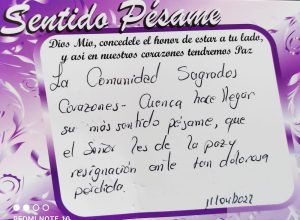 Sentido Pésame
Dios Mio, concedele el honor de estar a tu lado,
y asi en nuestros corazones tendremos Paz
La Comunidad Sagrados
Corazones - Cuenca hace llegar
su más sentido pésame, que
el Señor les de la paz y
resignación ante tan dolorosa
pérdida.
REDMI NOTE 10